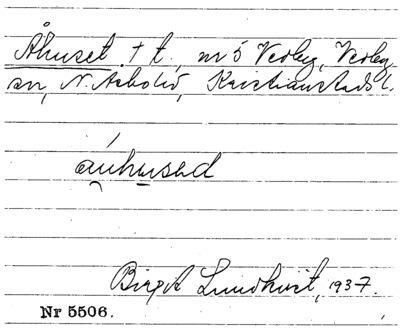 Åhuset † t. nr 5 Verley, Verley
sn, N. Asbohd, Kristianstads l.
áuhused
Birgit Lundkvist, 1937.
Nr 5506.